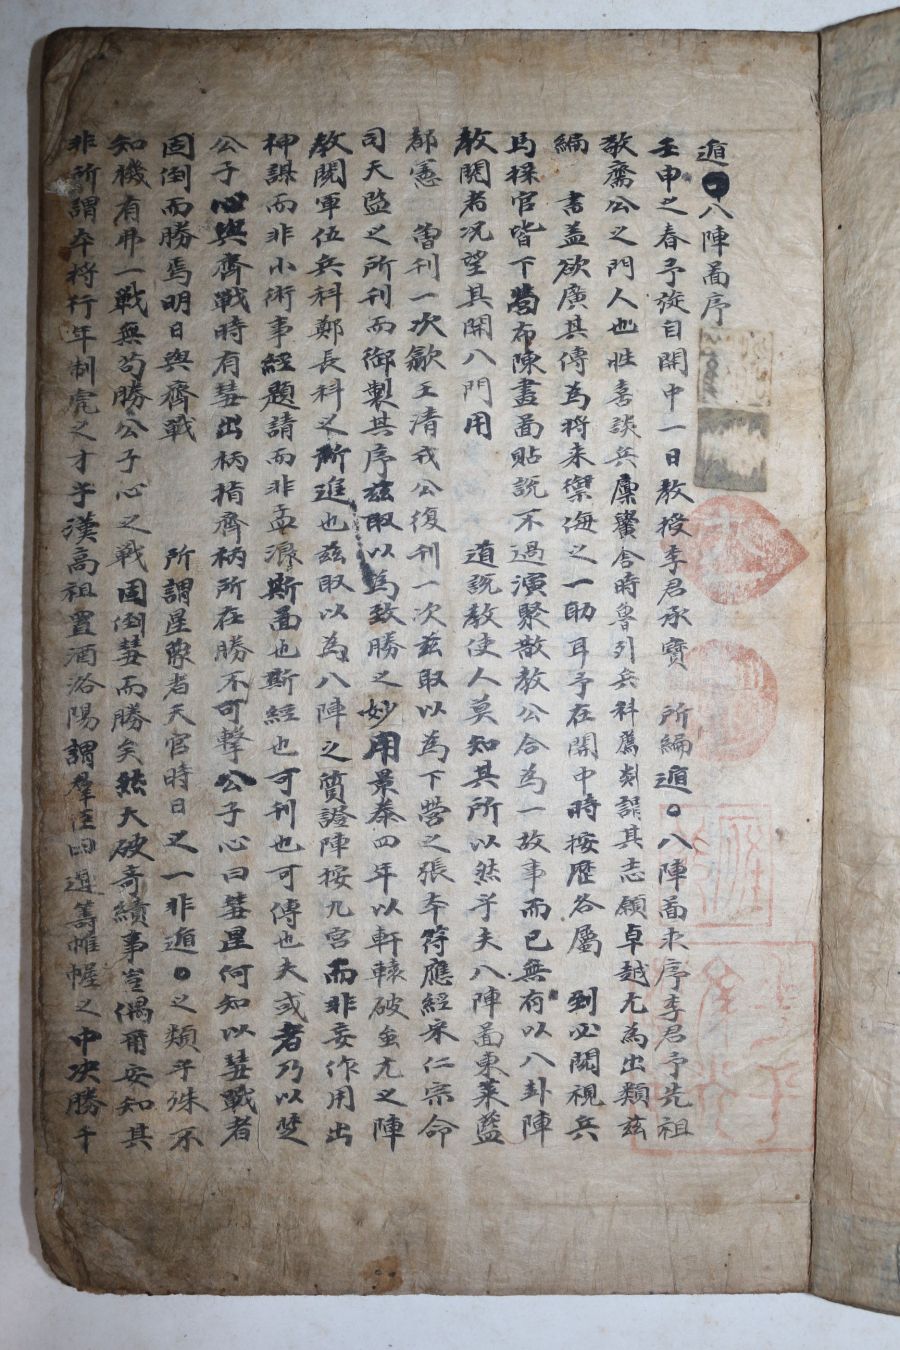 遁●八陣畐序
壬申之春予旋自關中一日教授李君承寶 所編遁○八陣畐求序李君予先祖
敬齋公之門人也性喜談兵黌舍時魯列兵科薦剡誥其志願卓越尤為出類茲
編 書盖欲廣其傳為將来禦侮之一助耳予在關中時按歷各屬 到必閱視兵
馬操官皆下營布陳畫畐貼說不過演聚散教公合為一故事而已無有以八卦陣
教閱者况望其開八門用 道說教使人莫知其所以然乎夫八陣畐東萊藍
都憲 曽刊一次歙王清戎公復刊一次茲取以為下營之張本符應經宋仁宗命
司天監之所刊而御製其序茲取以為致勝之妙用景泰四年以軒轅破蚩尤之陣
教閱軍伍兵科鄭長科之所進也茲取以為八陣之質證陣按九宮而非妄作用出
神謀而非小術事經題請而非孟浪斯畐也斯經也可刊也可傳也夫或者乃以楚
公子心與齊戰時有彗出柄指齊柄所在勝不可擊公子心曰彗星何知以彗戰者
固倒而勝焉明日與齊戰 所謂星象者天官時日之一非遁○之類乎殊不
知機有弗一戰無苟勝公子心之戰固倒彗而勝矣然大破奇績事豈偶爾安知其
非所謂本将行年制克之才乎漢高祖置酒洛陽謂羣臣曰運籌帷幄之中决勝千